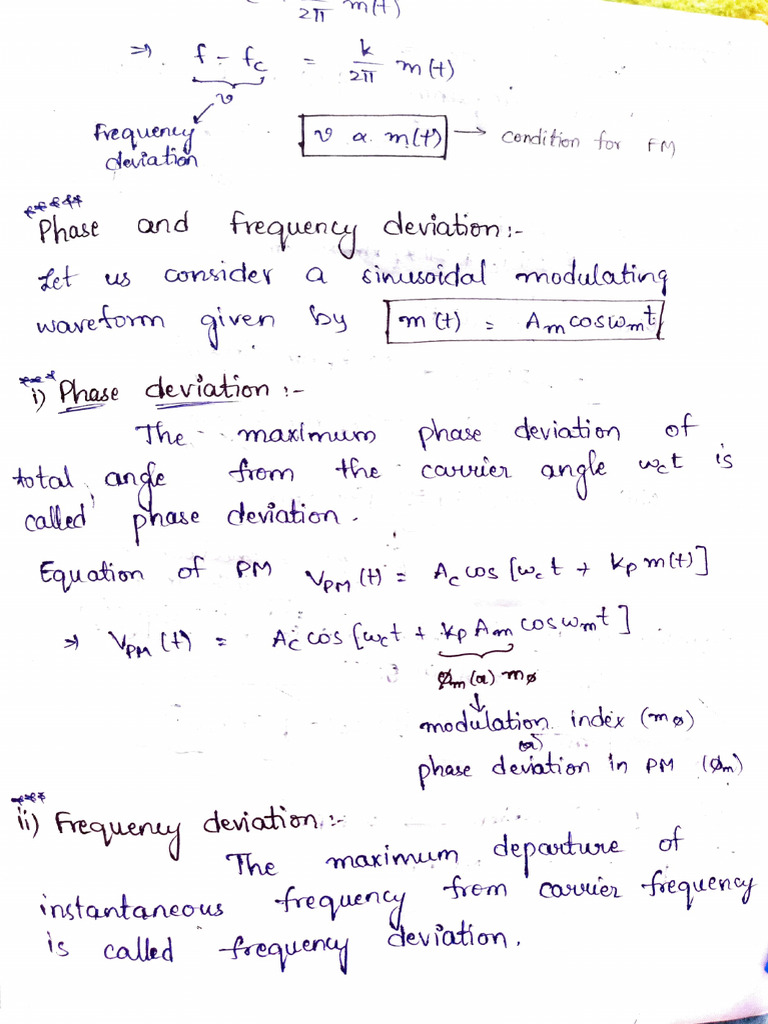 2π m(t)
⇒ f - fc = k/2π m(t)
v
Frequency
deviation
v α m(t) → condition for FM
*****
Phase and frequency deviation:-
Let us consider a sinusoidal modulating
waveform given by m(t) = Am cos ωmt
***
i) Phase deviation:-
The maximum phase deviation of
total angle from the carrier angle ωct is
called phase deviation.
Equation of PM VPM(t) = Ac cos [ωct + kp m(t)]
⇒ VPM(t) = Ac cos [ωct + kp Am cos ωmt].
øm (or) mø
↓
modulation index (mø)
(or)
phase deviation in PM (øm)
***
ii) Frequency deviation:-
The maximum departure of
instantaneous frequency from carrier frequency
is called frequency deviation.